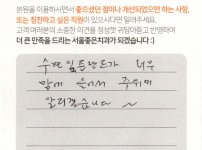 본원을 이용하시면서 좋으셨던 점이나 개선되었으면 하는 사항,
또는 칭찬하고 싶은 직원이 있으시다면 알려주세요.
고객 여러분의 소중한 의견을 정성껏 귀담아듣고 반영하여
더 큰 만족을 드리는 서울좋은치과가 되겠습니다 :)
수면 임플란트가 너무
맘에 들어서 주위에
알리겠습니다 ~